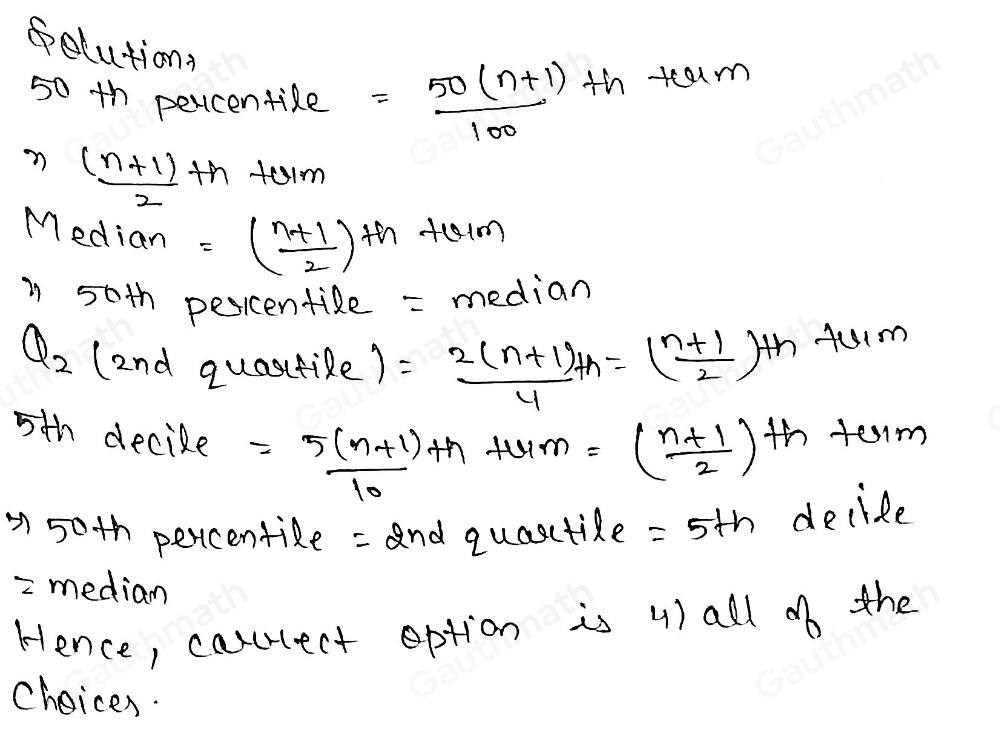 Solution,
50 th percentile = 50(n+1)/100 th term
⇒ (n+1)/2 th term
Median = (n+1/2)th term
⇒ 50th percentile = median
Q2 (2nd quartile) = 2(n+1)/4 th = (n+1/2)th term
5th decile = 5(n+1)/10 th term = (n+1/2)th term
⇒ 50th percentile = 2nd quartile = 5th decile
= median
Hence, correct option is 4) all of the
Choices.
Gauthmath